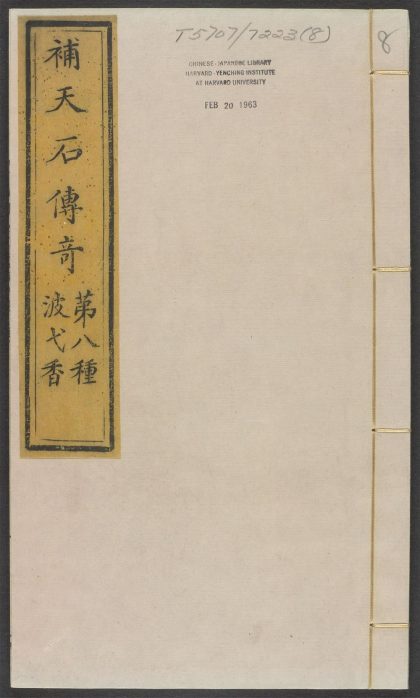 補天石傳奇
第八種
波弋香
T5707/7223(8)
8
CHINESE-JAPANESE LIBRARY
HARVARD-YENCHING INSTITUTE
AT HARVARD UNIVERSITY
FEB 20 1963